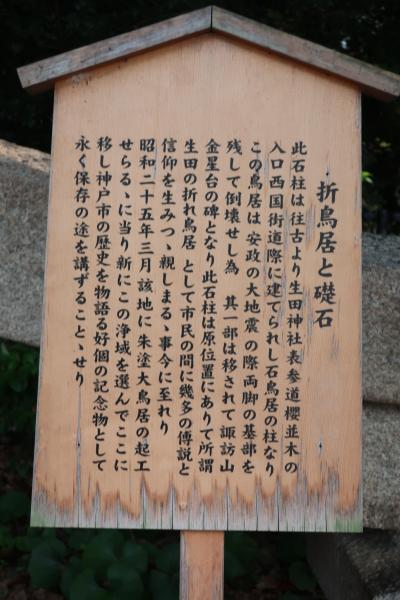 折鳥居と礎石
此石柱は往古より生田神社表参道櫻並木の
入口西国街道際に建てられし石鳥居の柱なり
この鳥居は 安政の大地震 の際両脚の基部を
残して倒壊せし為 其一部は移されて諏訪山
金星台の碑となり此石柱は原位置にありて所謂
生田の折れ鳥居 として市民の間に幾多の傳説と
信仰を生みつゝ親しまるゝ事今に至れり
昭和二十五年三月該地に朱塗大鳥居の起工
せらるゝに当り新にこの浄域を選んでここに
移し神戸市の歴史を物語る好個の記念物として
永く保存の途を講ずることゝせり